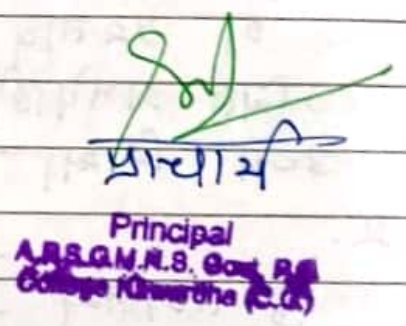 प्राचार्य
Principal
A.R.S.G.M.N.S. Govt. P.G
College Kawardha (C.G.)